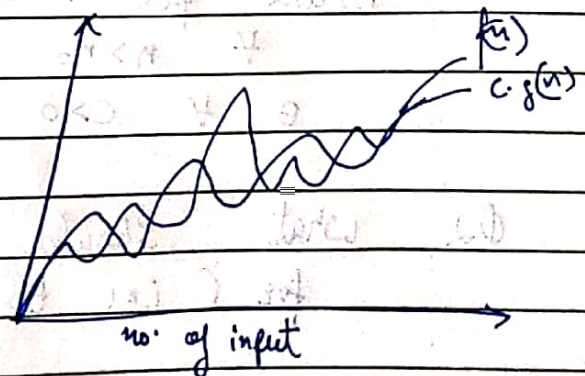 f(n)
c.g(n)
no. of input